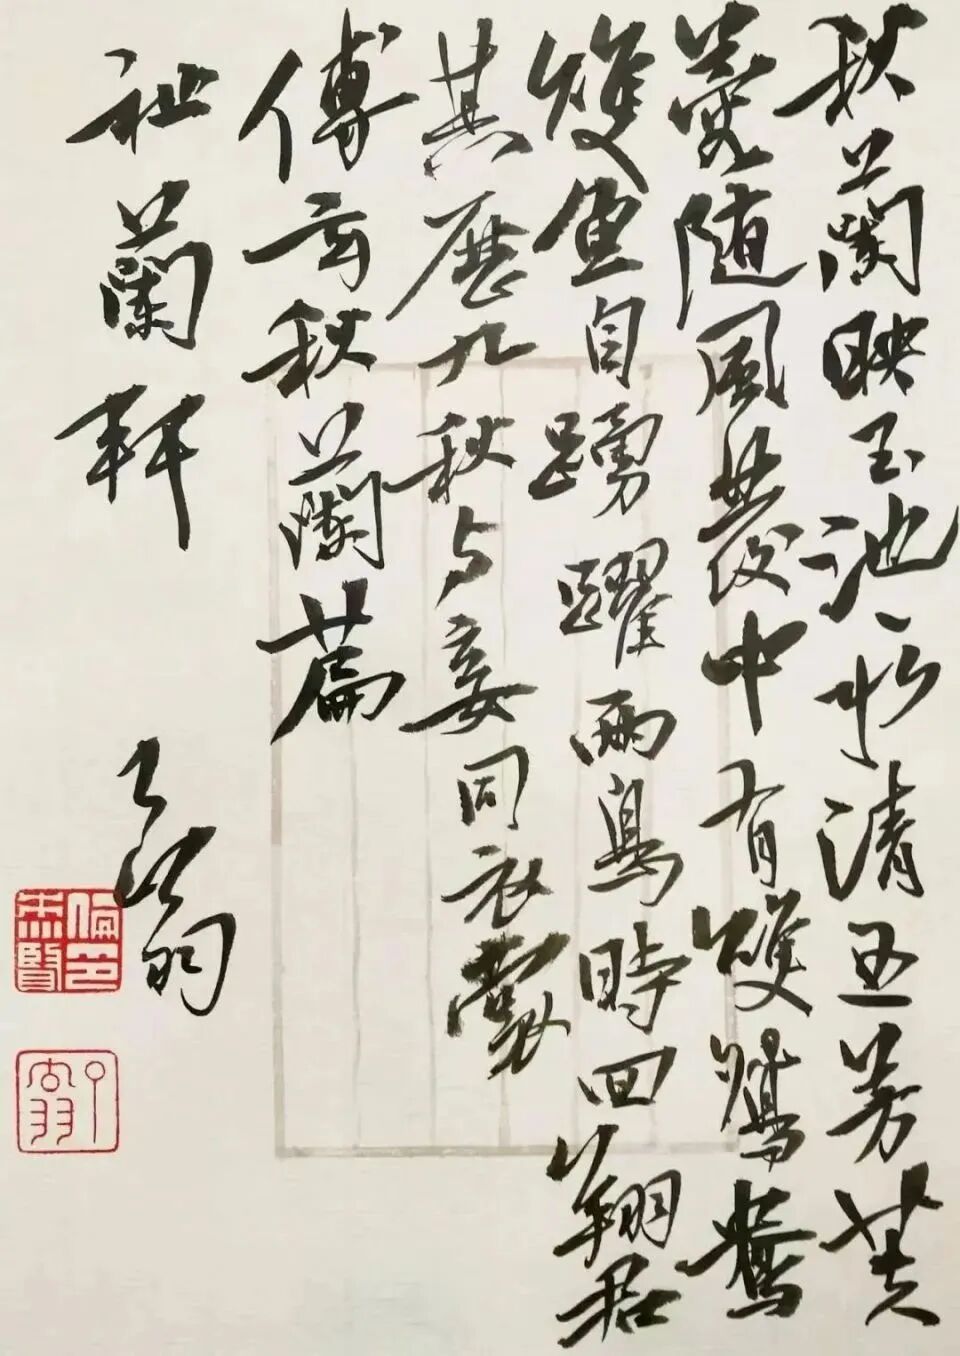 秋蘭映玉池〻水清且芳芙
蓉随風發中有雙鴛鴦
雙魚自踴躍兩鳥時回翔君
其歷九秋与妾同衣裳
傅玄秋蘭篇
祉蘭軒 了翁
了翁